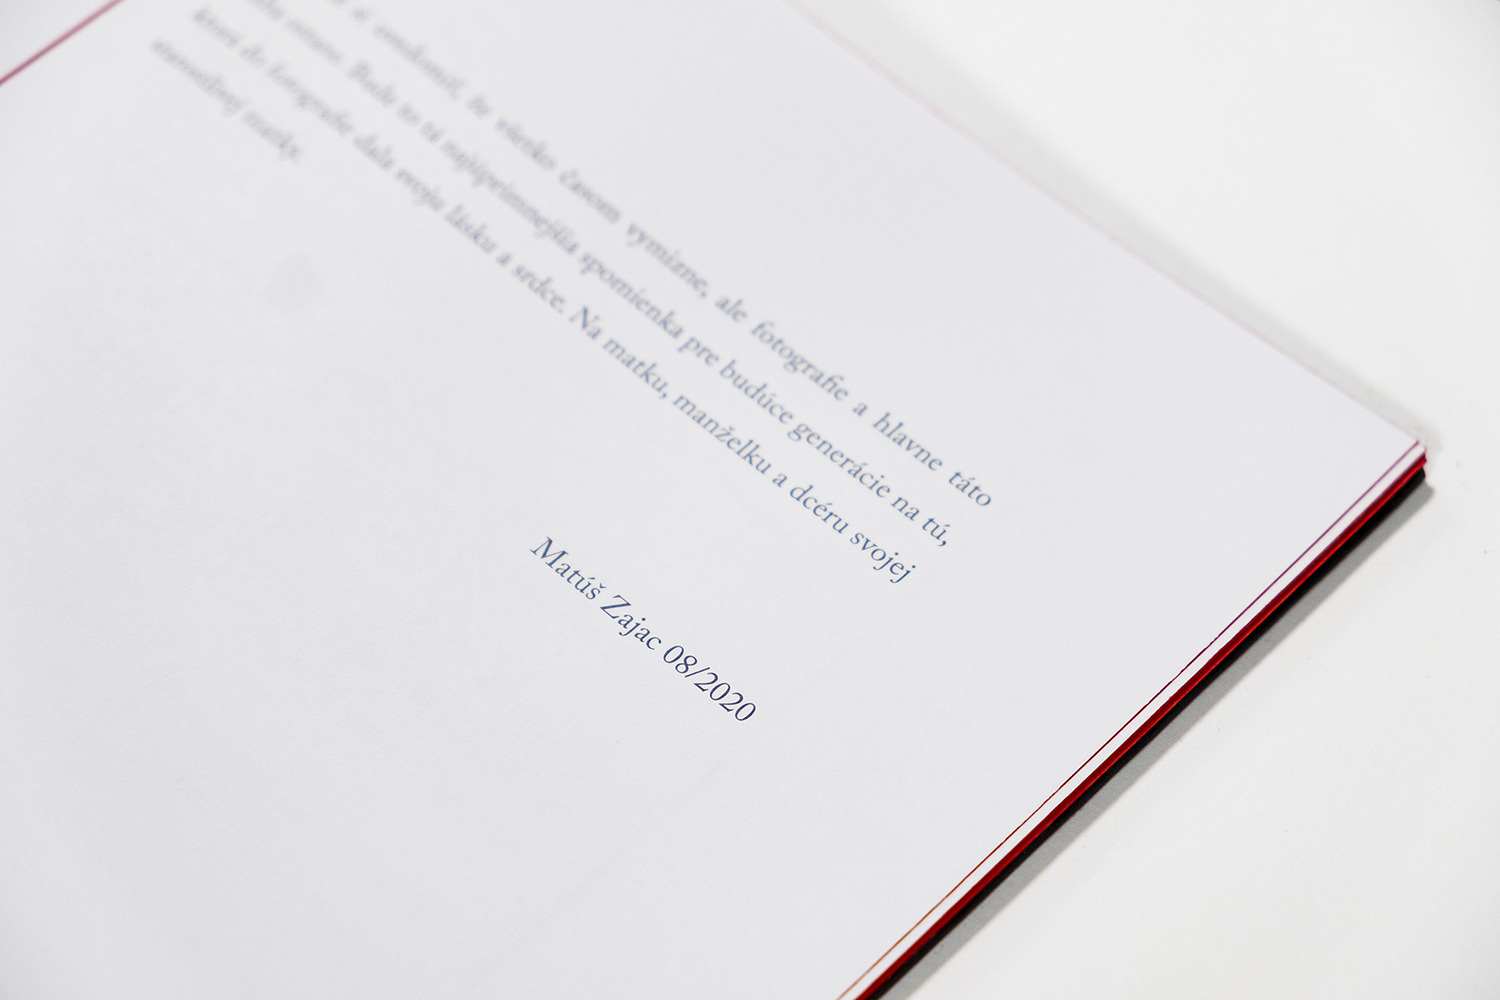 si uvedomiť, že všetko časom vymizne, ale fotografie a hlavne táto
ostane. Bude to tá najúprimnejšia spomienka pre budúce generácie na tú,
ktorá do fotografie dala svoju lásku a srdce. Na matku, manželku a dcéru svojej
starostlivej matky.
Matúš Zajac 08/2020